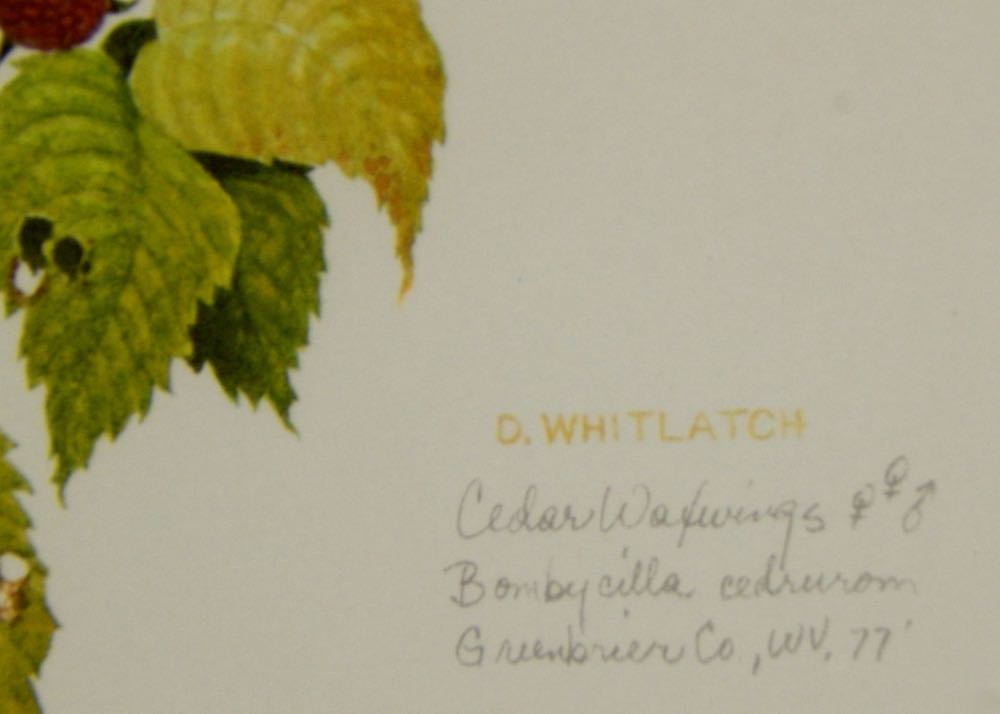 D. WHITLATCH
Cedar Waxwings ♀♀♂
Bombycilla cedrurom
Greenbrier Co, WV. 77'